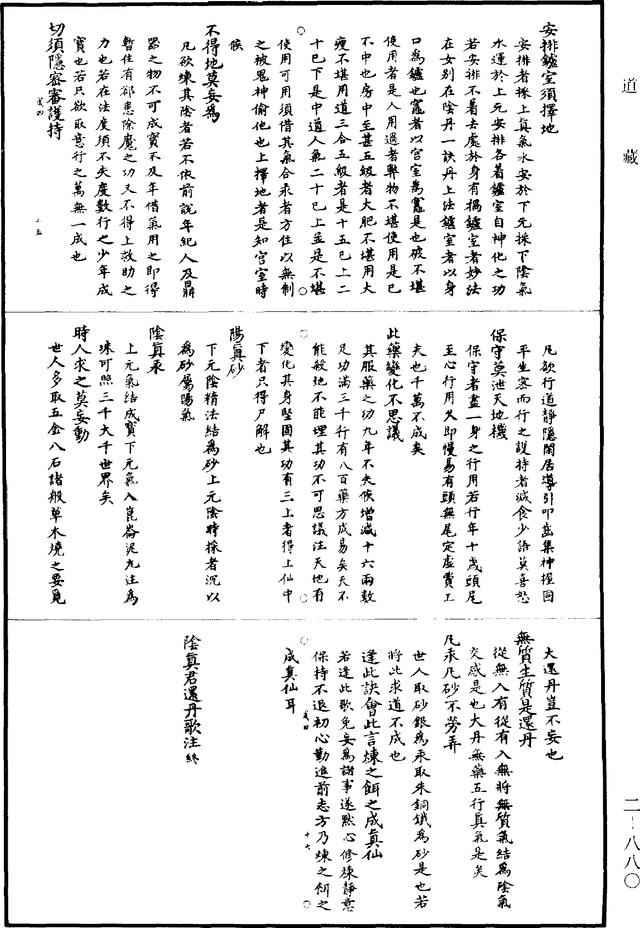 道藏
安排鑪室須擇地
安排者採上真氣水安於下元採下陰氣
水運於上元安排各着鑪室自神化之功
若安排不着去處於身有損鑪室者妙法
在女別在陰丹一訣丹上法鑪室者以身
口為鑪也竈者以宮室為竈是也破不堪
使用者是人用過者弊物不堪使用是已
不中也房中至甚五級者大肥不堪用大
瘦不堪用道三合五級者是十五已上二
十已下是中道人氣二十已上並是不堪
使用可用須借其氣合汞者方住以無制
之被鬼神偷他也上擇地者是知宮室時
候
不得地莫妄為
凡欲煉其陰者若不依前說年紀人及鼎
器之物不可成寶不及年借氣用之即得
暫住有郤患除魔之功又不得上救助之
力也若在法度須不失度數行之少年成
寶也若只欲取意行之萬無一成也
切須隱密審護持
凡欲行道靜隱閑居導引叩齒集神握固
平坐密而行之護持者減食少語莫喜怒
保守莫泄天地機
保守者盡一身之行用若行年十歲頭尾
至心行用失即慢易有頭無尾定虛費工
夫也千萬不成矣
此藥變化不思議
其服藥之功九年不失候增減十六兩數
足功滿三千行有八百藥方成易矣天不
能殺地不能埋其功不可思議注天地有
變化其身堅固其功有三上者得上仙中
下者只得尸解也
陽真砂
下元陰精法結為砂上元陰時採者沉以
為砂屬陽氣
陰真汞
上元氣結成寶下元氣入崑崙泥九注為
珠可照三千大千世界矣
時人求之莫妄動
世人多取五金八石諸般草木燒之要覓
大還丹豈不妄也
無質生質是還丹
從無入有從有入無將無質氣結為陰氣
交感是也大丹無藥五行真氣是矣
凡汞凡砂不勞弄
世人取砂銀為汞取朱銅鐵為砂是也若
將此求道不成也
逢此訣會此言煉之餌之成真仙
若逢此歌免妄為謝事遂默心修煉靜意
保持不退初心勤進前志方乃煉之餌之
成真仙耳
陰真君還丹歌注終
二—八八〇